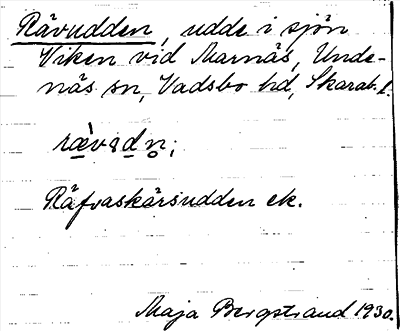 Rävudden, udde i sjön
Viken vid Marnäs, Unde-
näs sn, Vadsbo hd, Skarab. l.
Räfvaskärsudden ek.
Maja Bergstrand 1930.